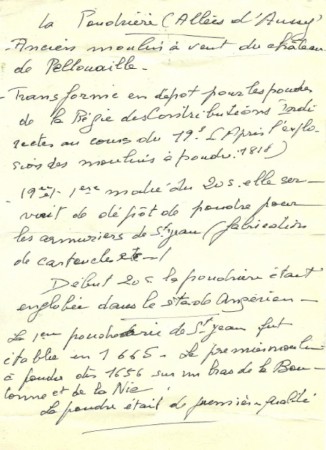 La Poudrière (Allées d'Aussy)
- Anciens moulin à vent du château
de Pellouaille -
- Transformé en dépôt pour les poudres
de la Régie des Contributions Indi
rectes au cours du 19e s (Après l'explo
sion des moulins à poudre. 1818)
- 19es - 1ère moitié du 20 s. elle ser
vait de dépôt de poudre pour
les armuriers de St Jean (fabrication
de cartouches etc - )
Début 20s la poudrière était
englobée dans le stade Angérien -
La 1ère poudrerie de St Jean fut
établie en 1665 - Le premier moulin
à poudre dès 1656 sur un bras de la Bou
tonne et de la Nie !
La poudre était de première qualité